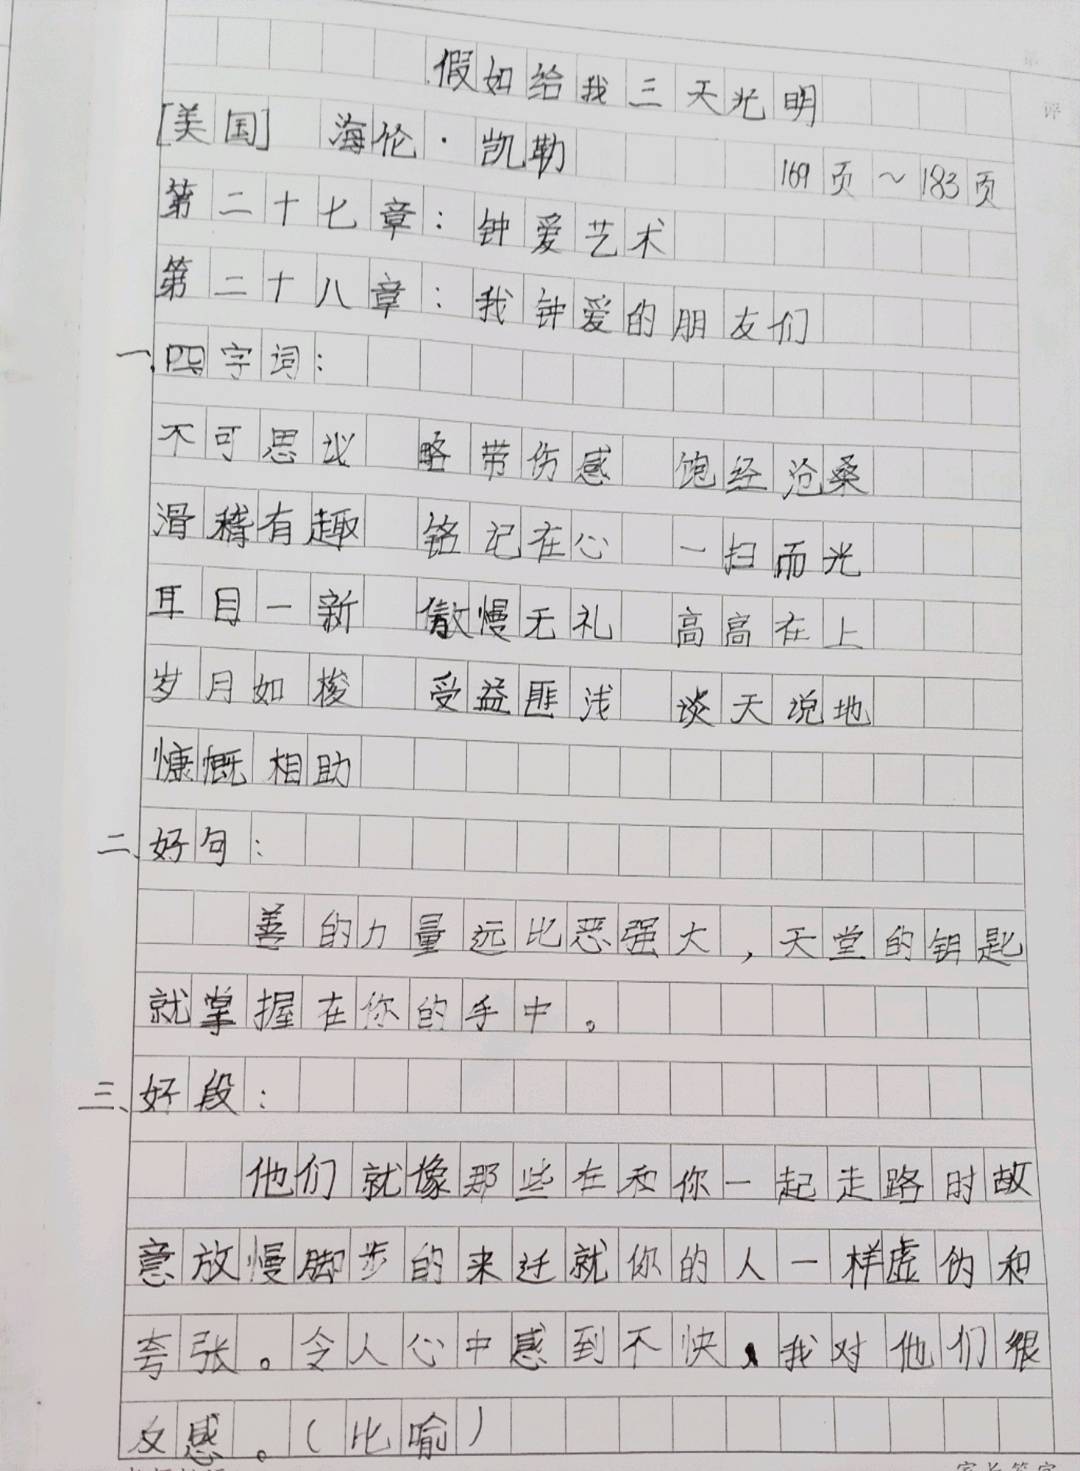 假如给我三天光明
[美国] 海伦·凯勒 169页~183页
第二十七章：钟爱艺术
第二十八章：我钟爱的朋友们
一、四字词：
不可思议 略带伤感 饱经沧桑
滑稽有趣 铭记在心 一扫而光
耳目一新 傲慢无礼 高高在上
岁月如梭 受益匪浅 谈天说地
慷慨相助
二、好句：
善的力量远比恶强大，天堂的钥匙
就掌握在你的手中。
三、好段：
他们就像那些在和你一起走路时故
意放慢脚步的来迁就你的人一样虚伪和
夸张。令人心中感到不快，我对他们很
反感。(比喻)